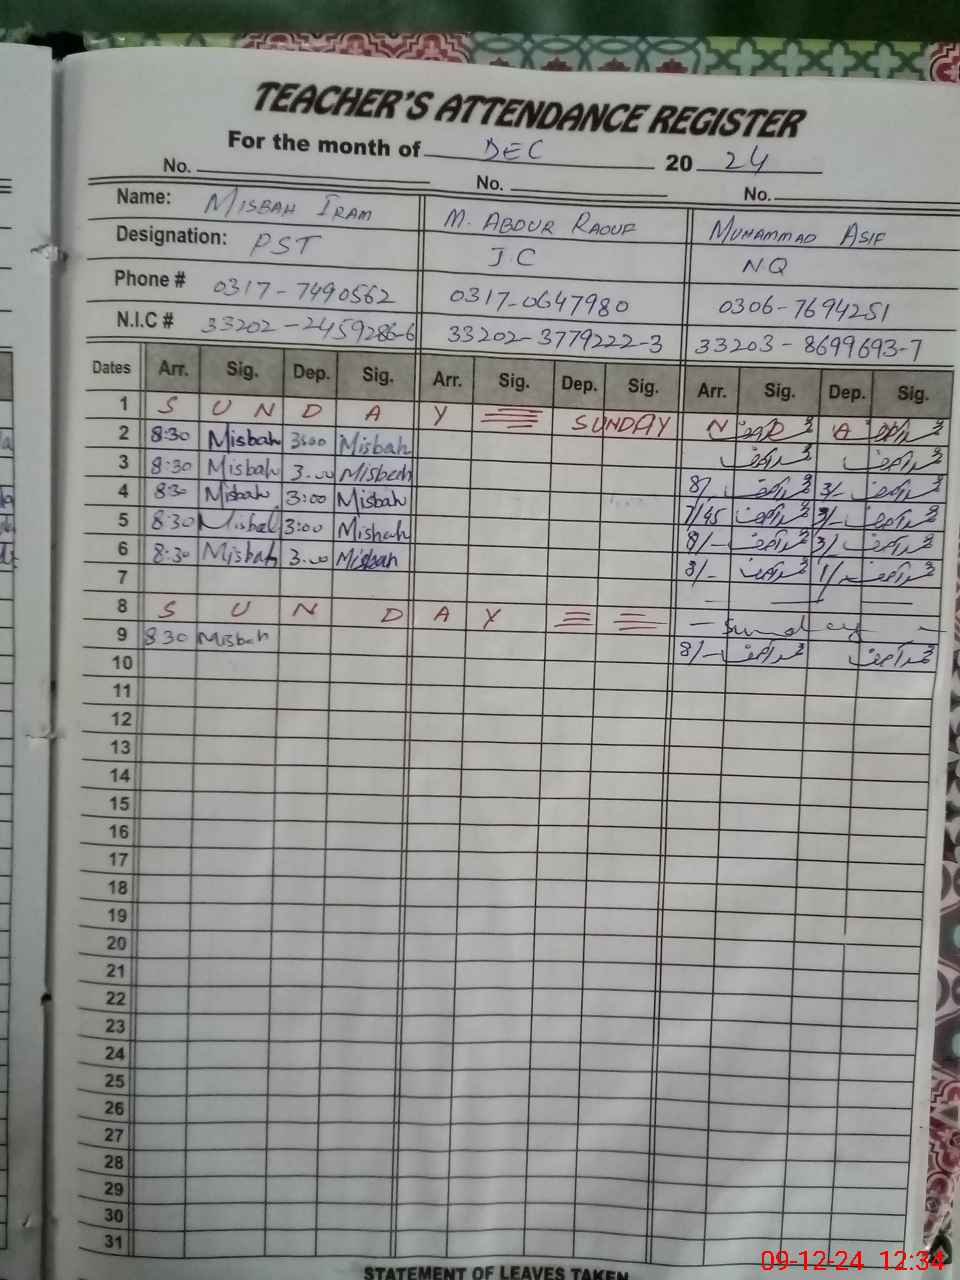 TEACHER'S ATTENDANCE REGISTER
For the month of DEC 20 24
No. No. No.
Name: MISBAH IRAM M. ABDUR RAOUF MUHAMMAD ASIF
Designation: PST J.C NQ
Phone # 0317-7490562 0317-0647980 0306-7694251
N.I.C # 33202-2459286-6 33202-3779222-3 33203-8699693-7
Dates Arr. Sig. Dep. Sig. Arr. Sig. Dep. Sig. Arr. Sig. Dep. Sig.
1 S U N D A Y SUNDAY N D A محمد آصف محمد آصف
2 8:30 Misbah 3:00 Misbah محمد آصف محمد آصف
3 8:30 Misbah 3:00 Misbah 8/- محمد آصف 3/- محمد آصف
4 8:30 Misbah 3:00 Misbah 7/45 محمد آصف 3/- محمد آصف
5 8:30 Misbah 3:00 Misbah 8/- محمد آصف 3/- محمد آصف
6 8:30 Misbah 3:00 Misbah 8/- محمد آصف 1/- محمد آصف
7
8 S U N D A Y - Sunday -
9 8 30 Misbah 8/- محمد آصف محمد آصف
10
11
12
13
14
15
16
17
18
19
20
21
22
23
24
25
26
27
28
29
30
31
STATEMENT OF LEAVES TAKEN
09-12-24 12:34